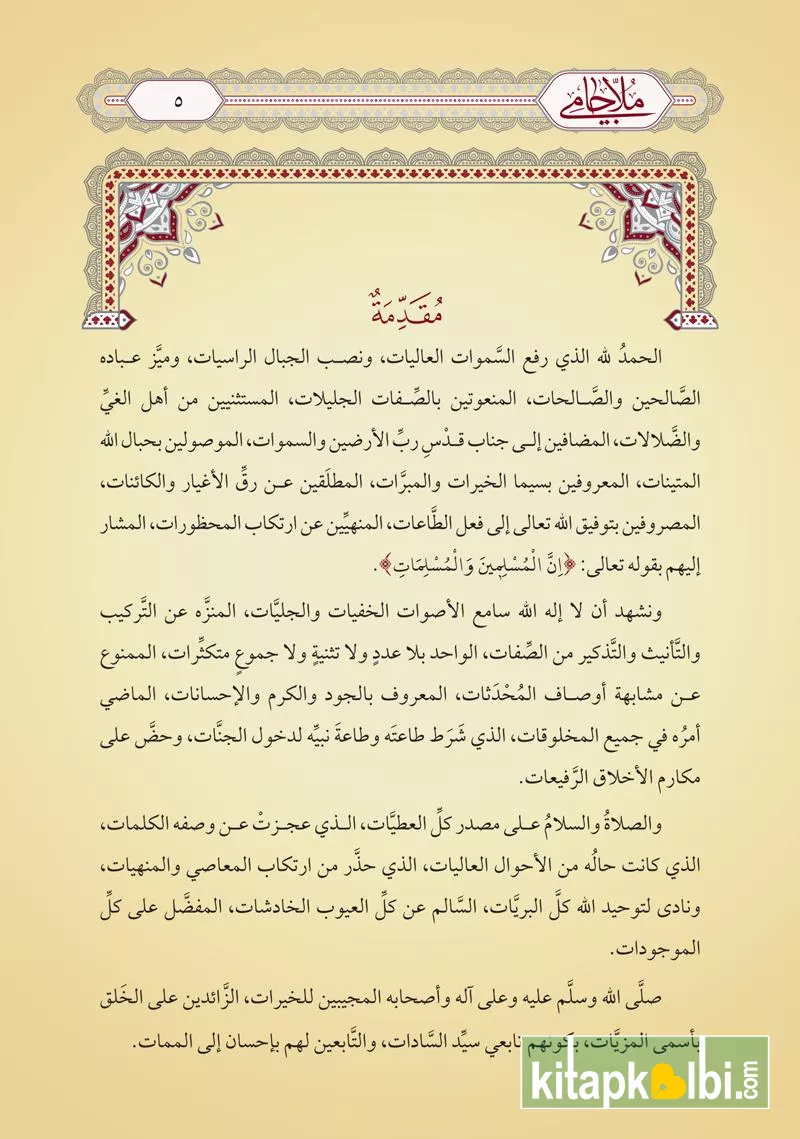 مُلّا جَامِي
٥
مُقَدِّمَةٌ
الحمدُ لله الذي رفع السَّموات العاليات، ونصب الجبال الراسيات، وميَّز عباده
الصَّالحين والصَّالحات، المنعوتين بالصِّفات الجليلات، المستثنيين من أهل الغيِّ
والضَّلالات، المضافين إلى جناب قدْسِ ربِّ الأرضين والسموات، الموصولين بحبال الله
المتينات، المعروفين بسيما الخيرات والمبرَّات، المطلَقين عن رقِّ الأغيار والكائنات،
المصروفين بتوفيق الله تعالى إلى فعل الطَّاعات، المنهيِّين عن ارتكاب المحظورات، المشار
إليهم بقوله تعالى: ﴿اِنَّ الْمُسْلِمِينَ وَالْمُسْلِمَاتِ﴾.
ونشهد أن لا إله الله سامع الأصوات الخفيات والجليَّات، المنزَّه عن التَّركيب
والتَّأنيث والتَّذكير من الصِّفات، الواحد بلا عددٍ ولا تثنيةٍ ولا جموعٍ متكثِّرات، الممنوع
عن مشابهة أوصاف المُحْدَثات، المعروف بالجود والكرم والإحسانات، الماضي
أمرُه في جميع المخلوقات، الذي شَرَط طاعتَه وطاعةَ نبيِّه لدخول الجنَّات، وحضَّ على
مكارم الأخلاق الرَّفيعات.
والصلاةُ والسلامُ على مصدر كلِّ العطيَّات، الذي عجزتْ عن وصفه الكلمات،
الذي كانت حالُه من الأحوال العاليات، الذي حذَّر من ارتكاب المعاصي والمنهيات،
ونادى لتوحيد الله كلَّ البريَّات، السَّالم عن كلِّ العيوب الخادشات، المفضَّل على كلِّ
الموجودات.
صلَّى الله وسلَّم عليه وعلى آله وأصحابه المجيبين للخيرات، الزَّائدين على الخَلق
بأسمى المزيَّات، بكونهم تابعي سيِّد السَّادات، والتَّابعين لهم بإحسان إلى الممات.
kitapkalbi.com